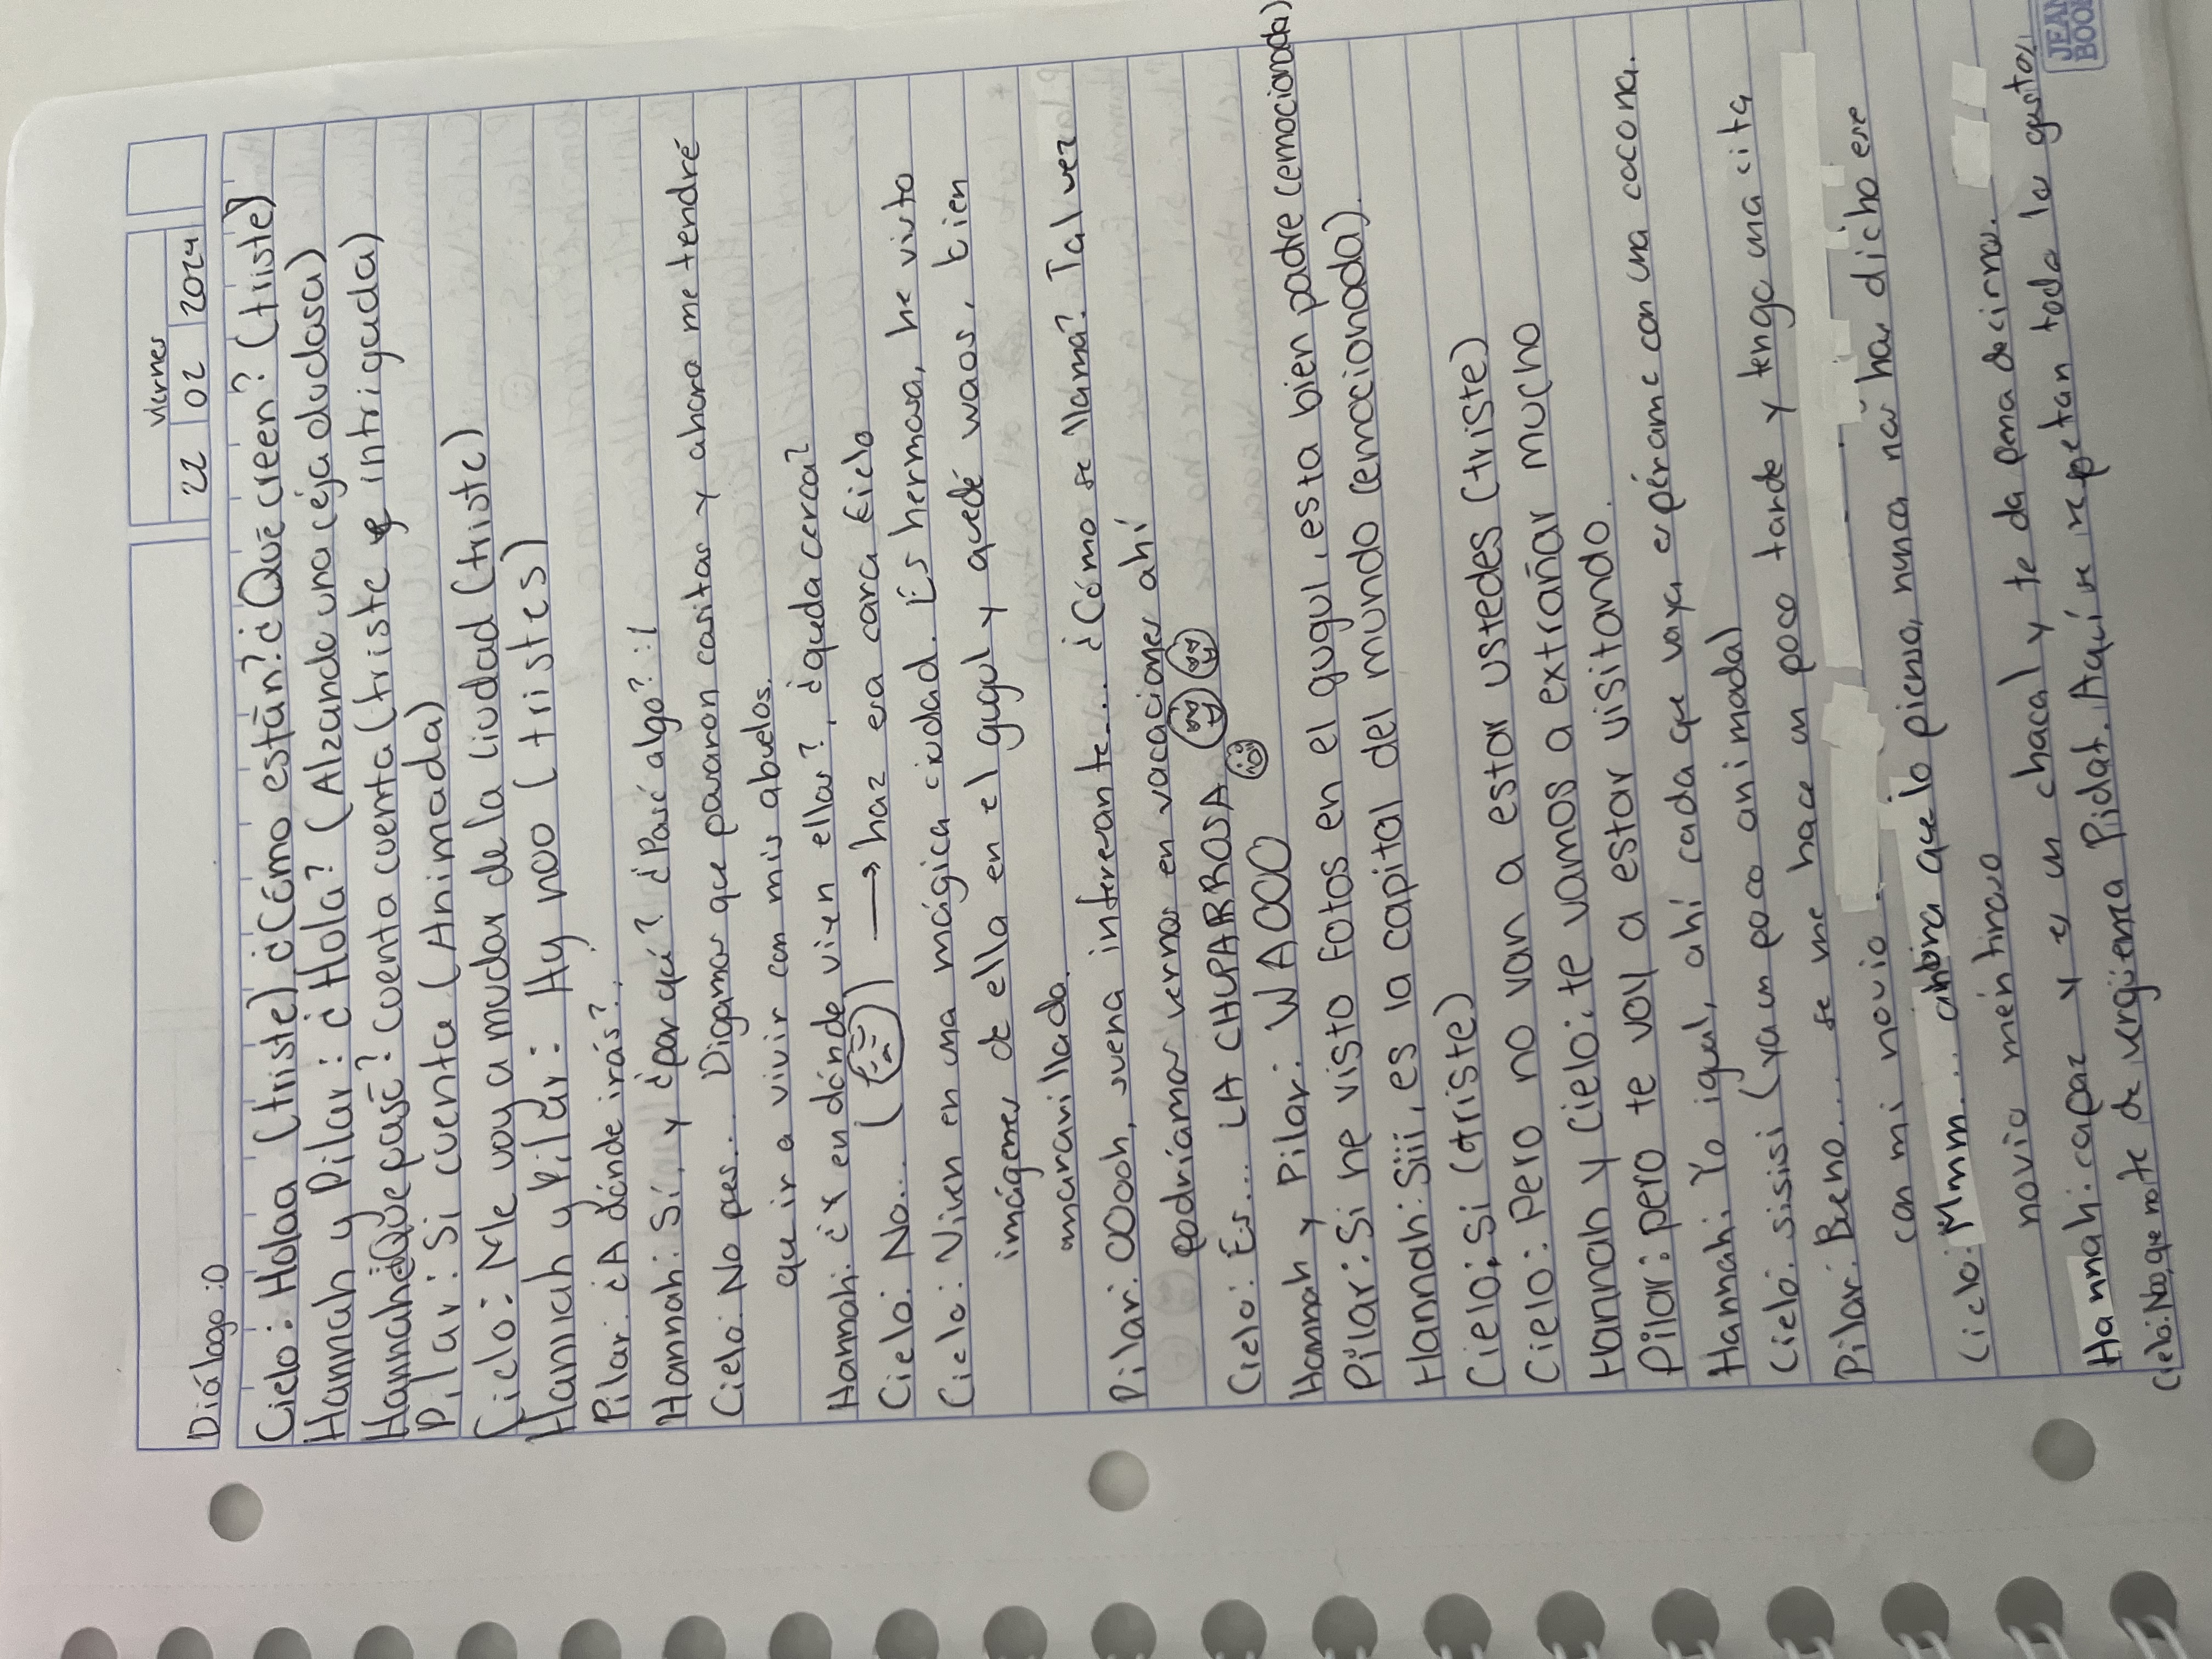 viernes
22 02 2024
Diálogo :O
Cielo: Holaa (triste) ¿Cómo están? ¿Qué creen? (triste)
Hannah y Pilar: ¿Hola? (Alzando una ceja dudosa)
Hannah: ¿Qué pasó? cuenta cuenta (triste e intrigada)
Pilar: Si cuenta (Animada)
Cielo: Me voy a mudar de la ciudad (triste)
Hannah y Pilar: Ay noo (tristes)
Pilar: ¿A dónde irás?..
Hannah: Sí, y ¿por qué? ¿Pasó algo? :l
Cielo: No pues... Digamos que pasaron cositas y ahora me tendré
que ir a vivir con mis abuelos.
Hannah: ¿Y en dónde viven ellos?, ¿queda cerca?
Cielo: No... ( ) → haz esa cara Cielo
Cielo: Viven en una mágica ciudad. Es hermosa, he visto
imágenes de ella en el gugul y quedé waos, bien
maravillada.
Pilar: OOooh, suena interesante.... ¿Cómo se llama? Tal vez
podríamos vernos en vacaciones ahí
Cielo: Es.... LA CHUPARROSA
Hannah y Pilar: WAOOO
Pilar: Si he visto fotos en el gugul, esta bien padre (emocionada)
Hannah: Siii, es la capital del mundo (emocionada).
Cielo: Si (triste)
Cielo: pero no van a estar ustedes (triste)
Hannah y Cielo: te vamos a extrañar mucho
Pilar: pero te voy a estar visitando.
Hannah: Yo igual, ahí cada que vaya espérame con una cocona.
Cielo: sisisi (ya un poco animada)
Pilar: Bueno... se me hace un poco tarde y tengo una cita
con mi novio
Cielo: Mmm... ahora que lo pienso, nunca nos has dicho ese
novio mentiroso
Hannah: capaz y es un chacal y te da pena decirnos.
Cielo: Noo, que no te de vergüenza Pidat. Aquí se respetan todo lo gustos
JEAN
BOOK